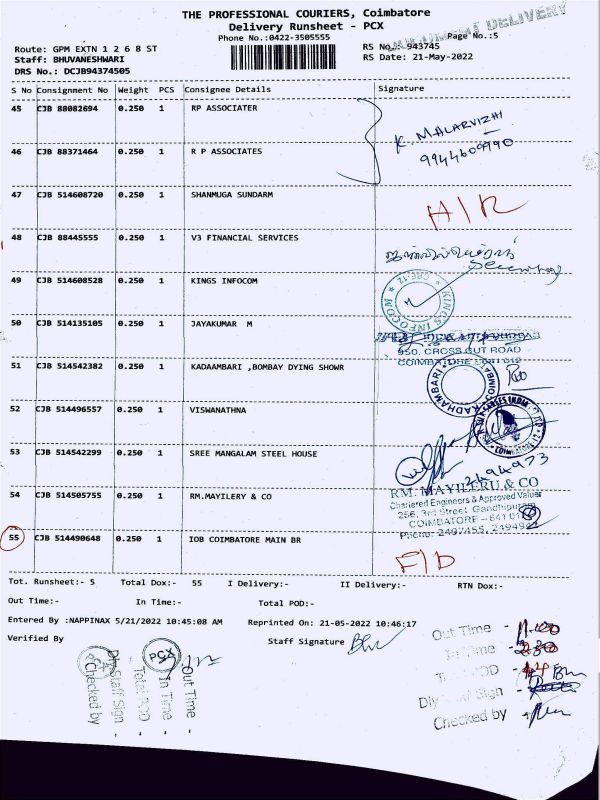 THE PROFESSIONAL COURIERS, Coimbatore
Delivery Runsheet - PCX
Phone No.:0422-3505555
Page No.:5
Route: GPM EXTN 1 2 6 8 ST
RS No.: 943745
Staff: BHUVANESHWARI
RS Date: 21-May-2022
DRS No.: DCJB94374505
S No Consignment No Weight PCS Consignee Details Signature
45 CJB 88082694 0.250 1 RP ASSOCIATER
K. MALARVIZHI
9944609990
46 CJB 88371464 0.250 1 R P ASSOCIATES
47 CJB 514608720 0.250 1 SHANMUGA SUNDARM
48 CJB 88445555 0.250 1 V3 FINANCIAL SERVICES
49 CJB 514608528 0.250 1 KINGS INFOCOM
KINGS INFOCO
50 CJB 514135105 0.250 1 JAYAKUMAR M
950, CROSS CUT ROAD
51 CJB 514542382 0.250 1 KADAAMBARI ,BOMBAY DYING SHOWR
KADHAMBARI
52 CJB 514496557 0.250 1 VISWANATHNA
53 CJB 514542299 0.250 1 SREE MANGALAM STEEL HOUSE
2494973
54 CJB 514505755 0.250 1 RM.MAYILERY & CO
RM. MAYILERU & CO
Chartered Engineers & Approved Valuer
256, 3rd Street Gandhipuram
COIMBATORE - 641 012
Phone: 2497455,
55 CJB 514490648 0.250 1 IOB COIMBATORE MAIN BR
F/D
Tot. Runsheet:- 5 Total Dox:- 55 I Delivery:- II Delivery:- RTN Dox:-
Out Time:- In Time:- Total POD:-
Entered By :NAPPINAX 5/21/2022 10:45:08 AM Reprinted On: 21-05-2022 10:46:17
Verified By
Staff Signature
PCX
Out Time
In Time
Total POD
Dly Staff Sign
Checked by
Out Time -
In Time -
POD -
Dly Sign -
Checked by -